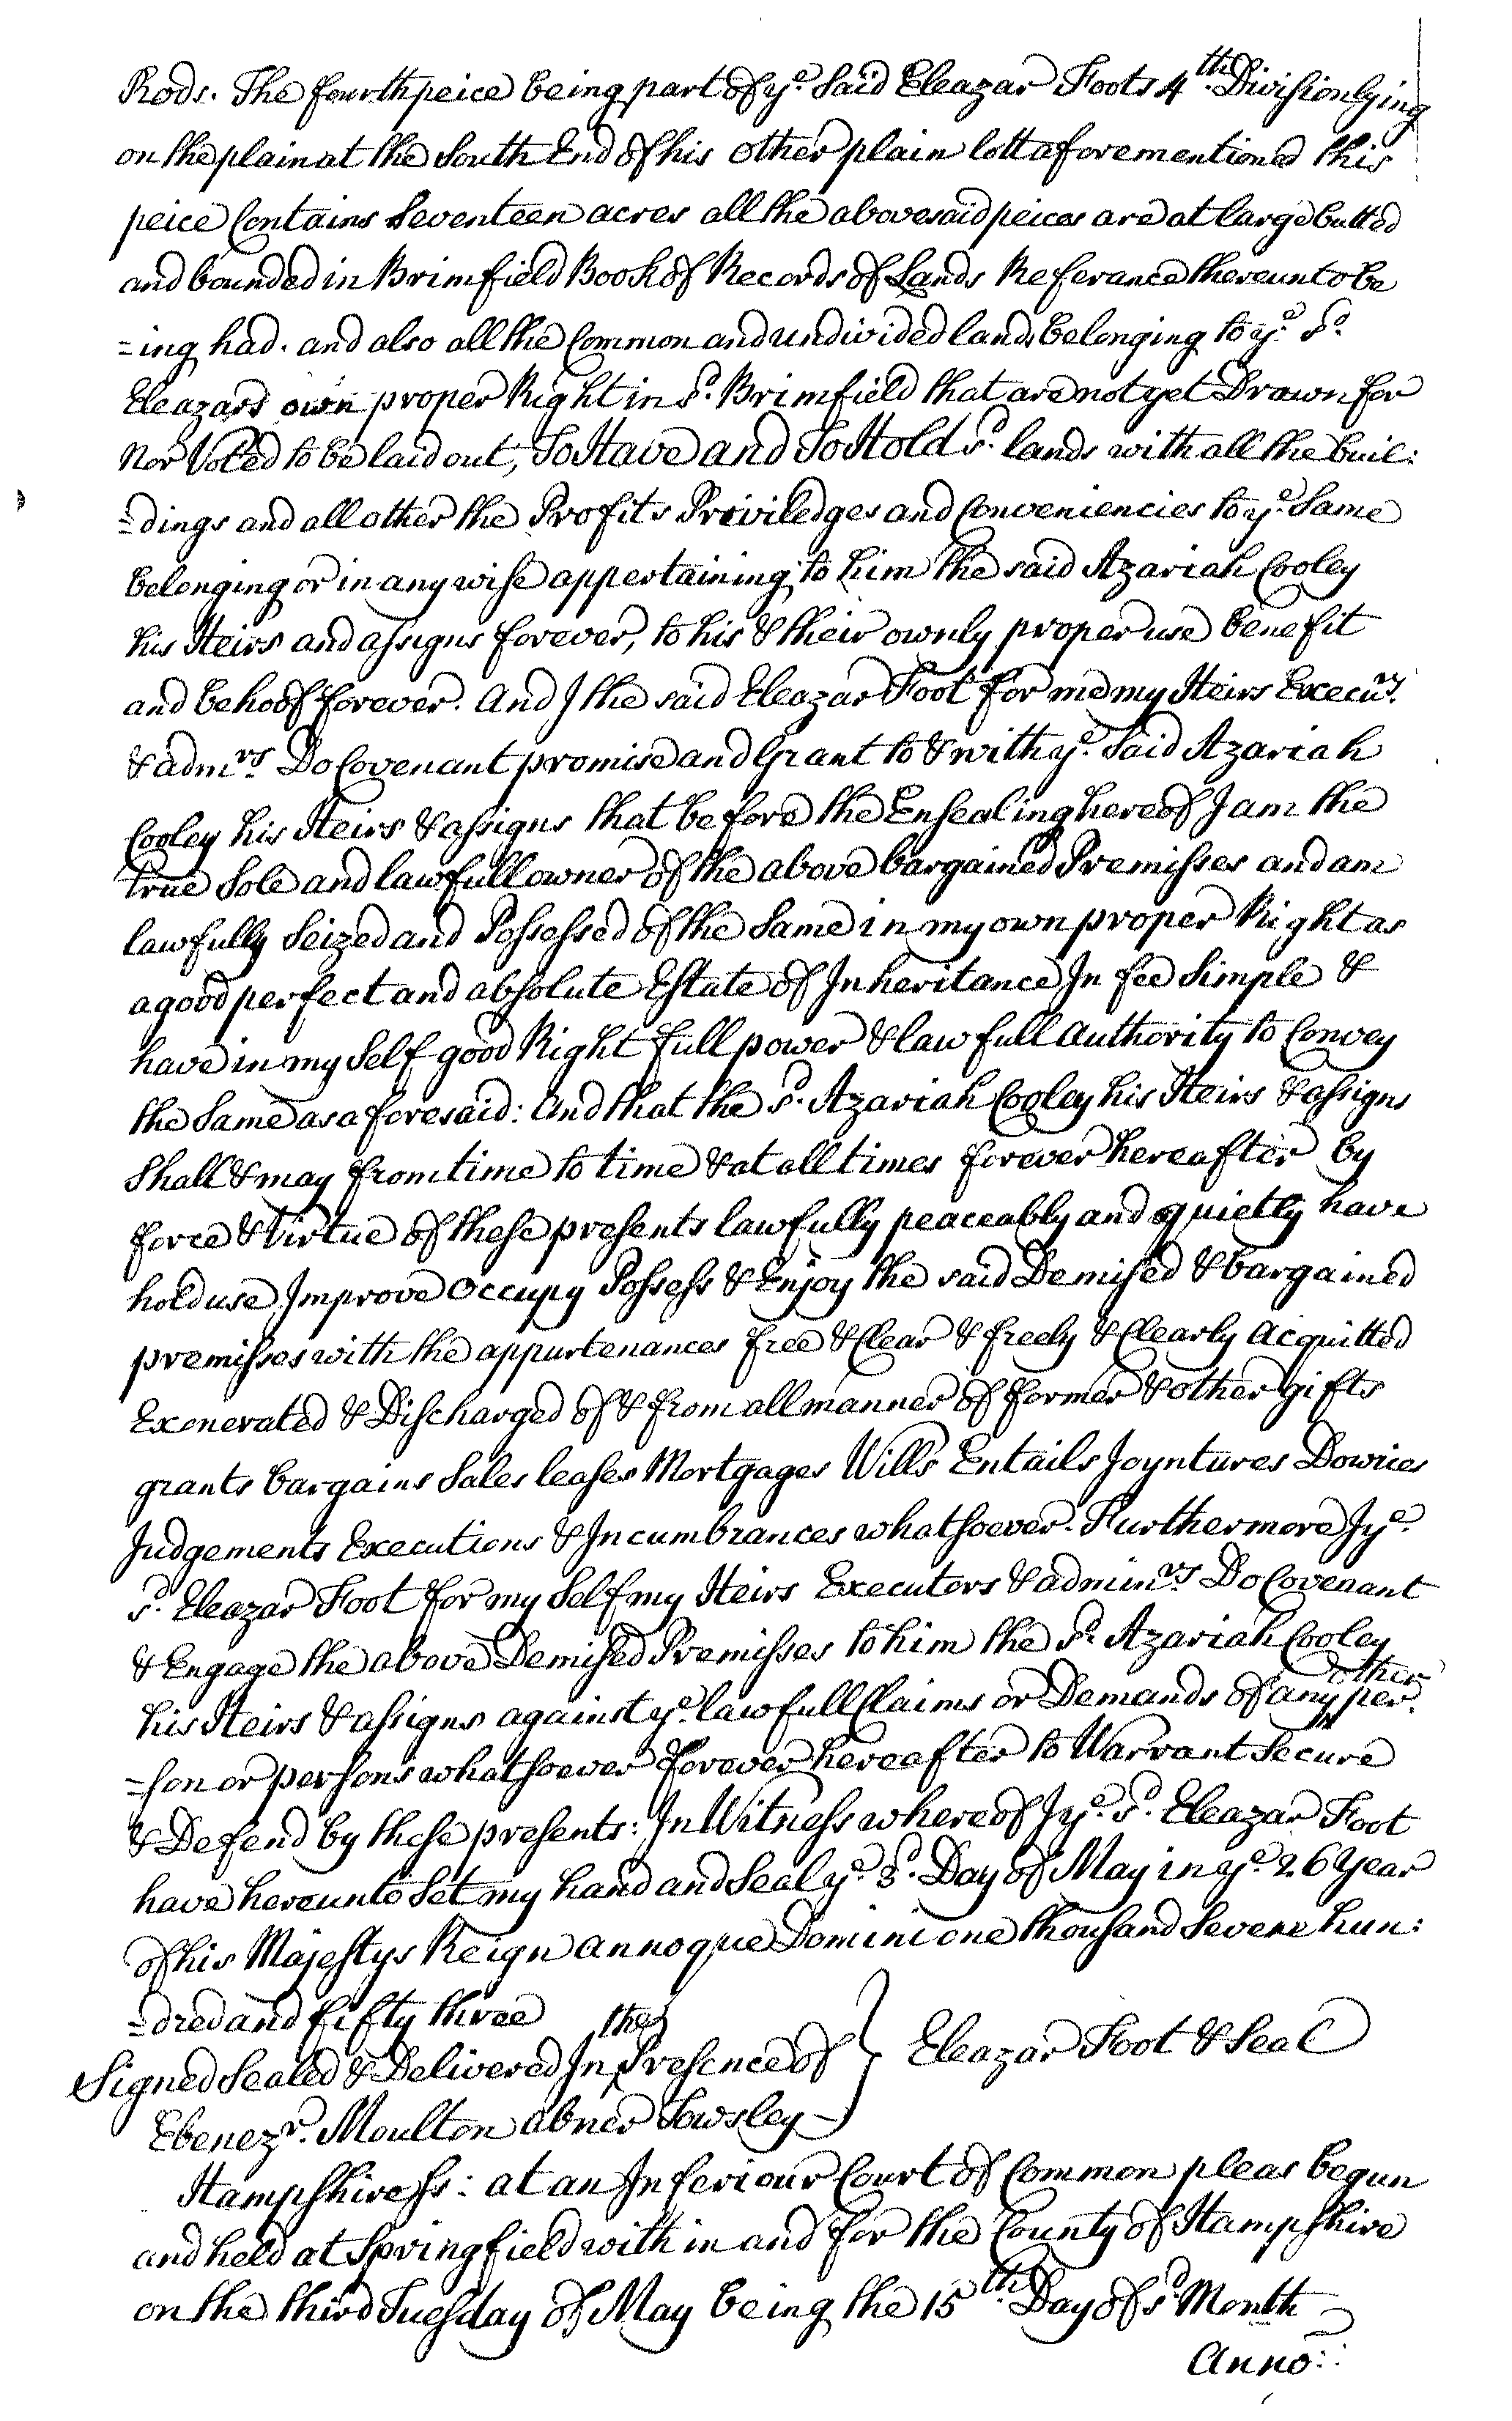 Rods. The fourth peice being part of ye. Said Eleazar Foots 4th. Division lying
on the plain at the South End of his other plain lott aforementioned this
peice Contains Seventeen acres all the abovesaid peices are at large butted
and bounded in Brimfield Book of Records of Lands Referance thereunto be
=ing had. and also all the Common and undivided lands belonging to ye. sd.
Eleazars own proper Right in sd. Brimfield that are not yet Drawn for
Nor Voted to be laid out, To Have and To Hold sd. lands with all the buil:
=dings and all other the Profits Priviledges and Conveniencies to ye. Same
belonging or in any wise appertaining to him the said Azariah Cooley
his Heirs and assigns forever, to his & their ownly proper use benefit
and behoof forever. And I the said Eleazar Foot for me my Heirs Execurs.
& admrs. Do Covenant promise and Grant to & with ye. Said Azariah
Cooley his Heirs & assigns that before the Ensealing hereof I am the
true Sole and lawfull owner of the above bargained Premisses and am
lawfully Seized and Possessed of the Same in my own proper Right as
a good perfect and absolute Estate of Inheritance In fee Simple &
have in my Self good Right full power & lawfull Authority to Convey
the Same as aforesaid: And that the sd. Azariah Cooley his Heirs & assigns
Shall & may from time to time & at all times forever hereafter by
force & Virtue of these presents lawfully peaceably and quietly have
hold use Improve Occupy Possess & Enjoy the said Demised & bargained
premisses with the appurtenances free & Clear & freely & Clearly Acquitted
Exonerated & Discharged of & from all manner of former & other gifts
grants bargains Sales leases Mortgages Wills Entails Joyntures Dowries
Judgements Executions & Incumbrances whatsoever. Furthermore I ye.
sd. Eleazar Foot for my Self my Heirs Executors & adminrs Do Covenant
& Engage the above Demised Premisses to him the sd. Azariah Cooley
his Heirs & assigns against ye. lawfull Claims or Demands of any other per.
=son or persons whatsoever forever hereafter to Warrant Secure
& Defend by these presents: In Witness whereof I ye. sd. Eleazar Foot
have hereunto Set my hand and Seal ye. 3d. Day of May in ye. 26 Year
of his Majestys Reign annoque Domini one thousand Seven hun:
=dred and fifty three
Signed Sealed & Delivered In the Presence of } Eleazar Foot & Seal
Ebenezr. Moulton Abner Towsley
Hampshire ss: at an Inferiour Court of Common pleas begun
and held at Springfield with in and for the County of Hampshire
on the third Tuesday of May being the 15th. Day of sd Month
Anno::